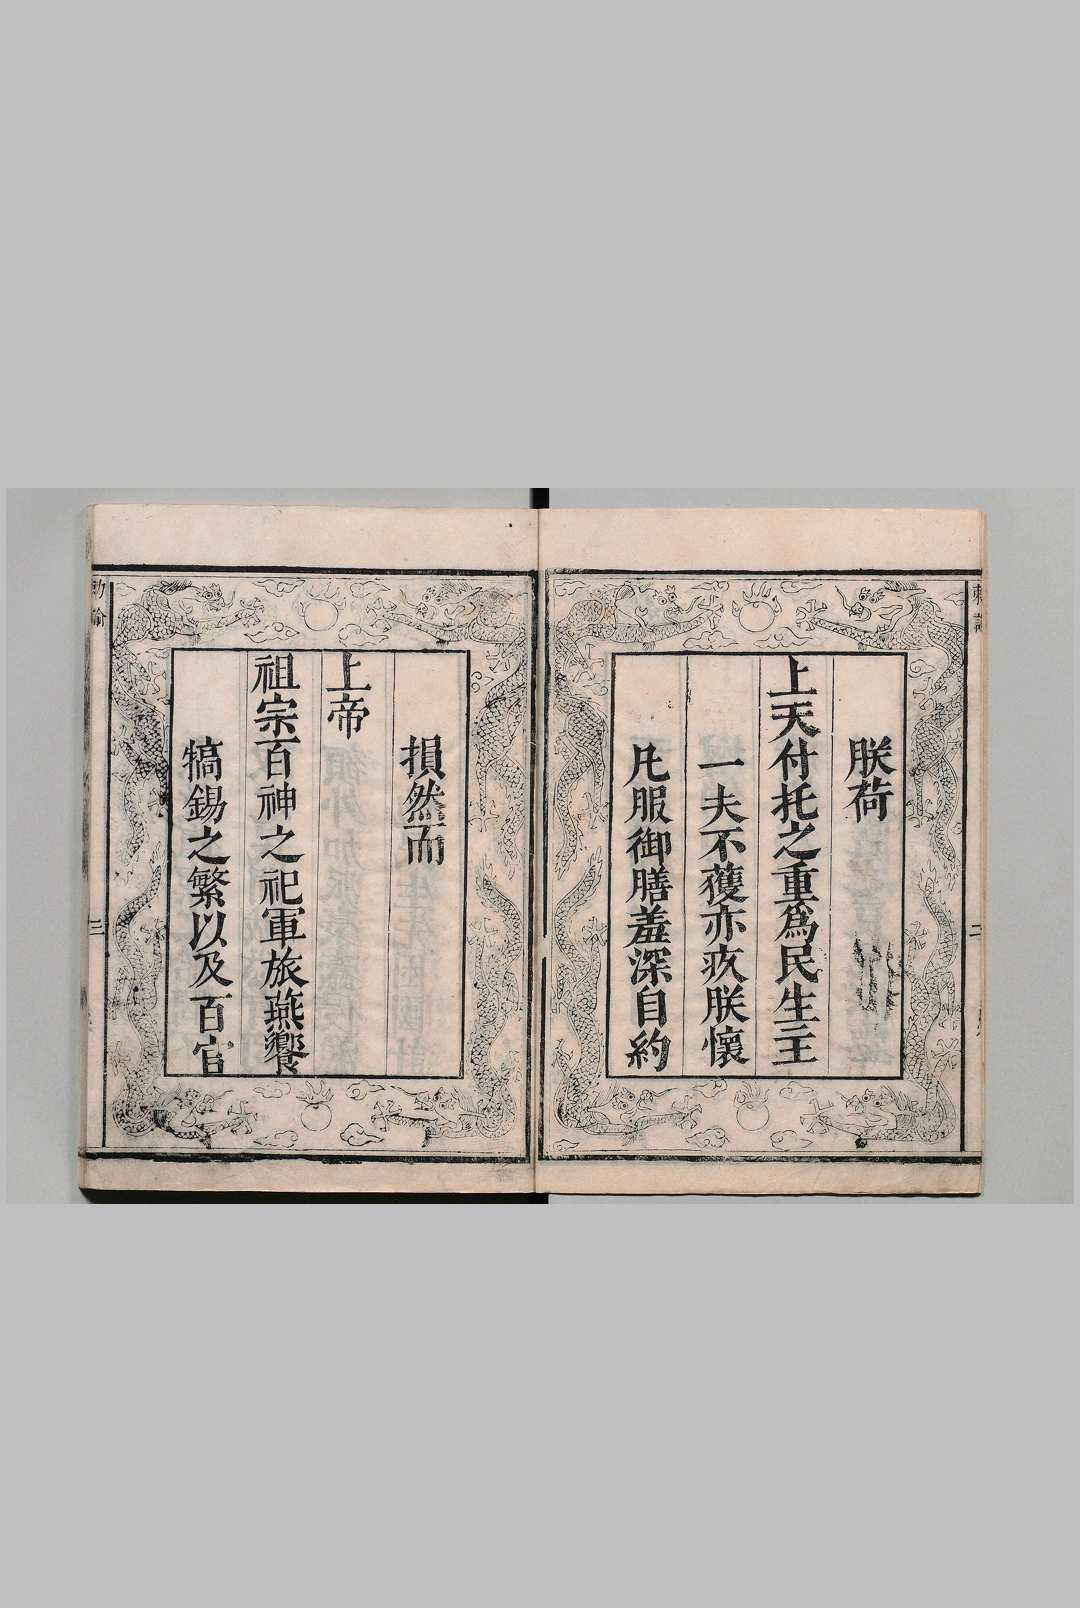 朕荷
上天付托之重爲民生主
一夫不獲亦疚朕懷
凡服御膳羞深自約
二
損然而
上帝
祖宗百神之祀軍旅燕饗
犒錫之繁以及百官
三